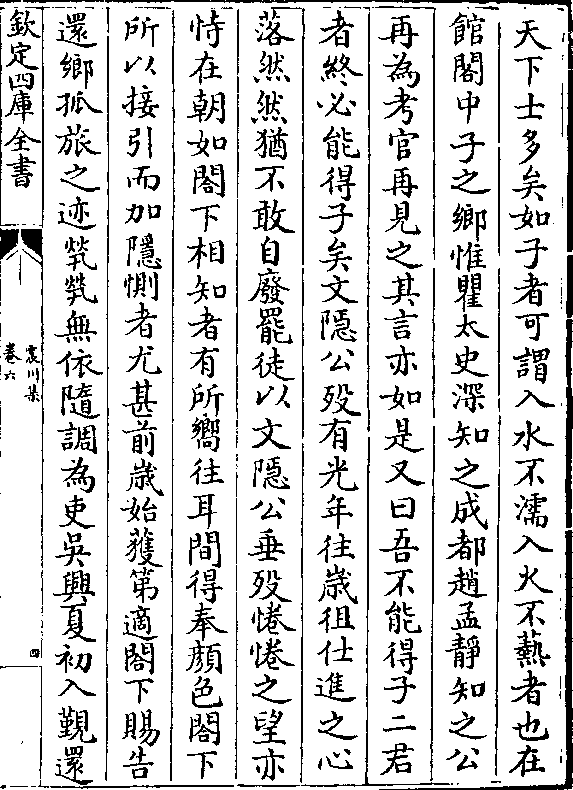 天下士多矣如子者可謂入水不濡入火不爇者也在
館閣中子之鄉惟瞿太史深知之成都趙孟靜知之公
再為考官再見之其言亦如是又曰吾不能得子二君
者終必能得子矣文隱公殁有光年往嵗徂仕進之心
落然然猶不敢自廢罷徒以文隱公垂殁惓惓之望亦
恃在朝如閣下相知者有所嚮往耳間得奉顔色閣下
所以接引而加隱惻者尤甚前嵗始獲第適閣下賜告
還鄉孤旅之迹煢煢無依隨調為吏吳興夏初入覲還
欽定四庫全書
震川集
卷六
四